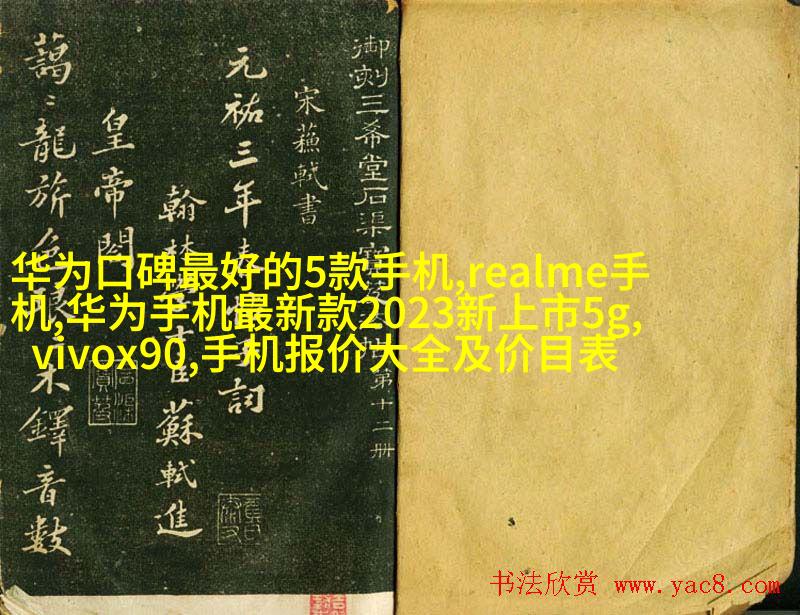 华为口碑最好的5款手机,realme手
机,华为手机最新款2023新上市5g,
vivox90,手机报价大全及价目表
御刻三希堂石渠寶
第十二册
宋蘇軾書
元祐三年春
詞
翰林
士臣蘇軾進
皇帝閣
藹〻龍旂色
木鐸音數
书法欣赏 www.yac8.com